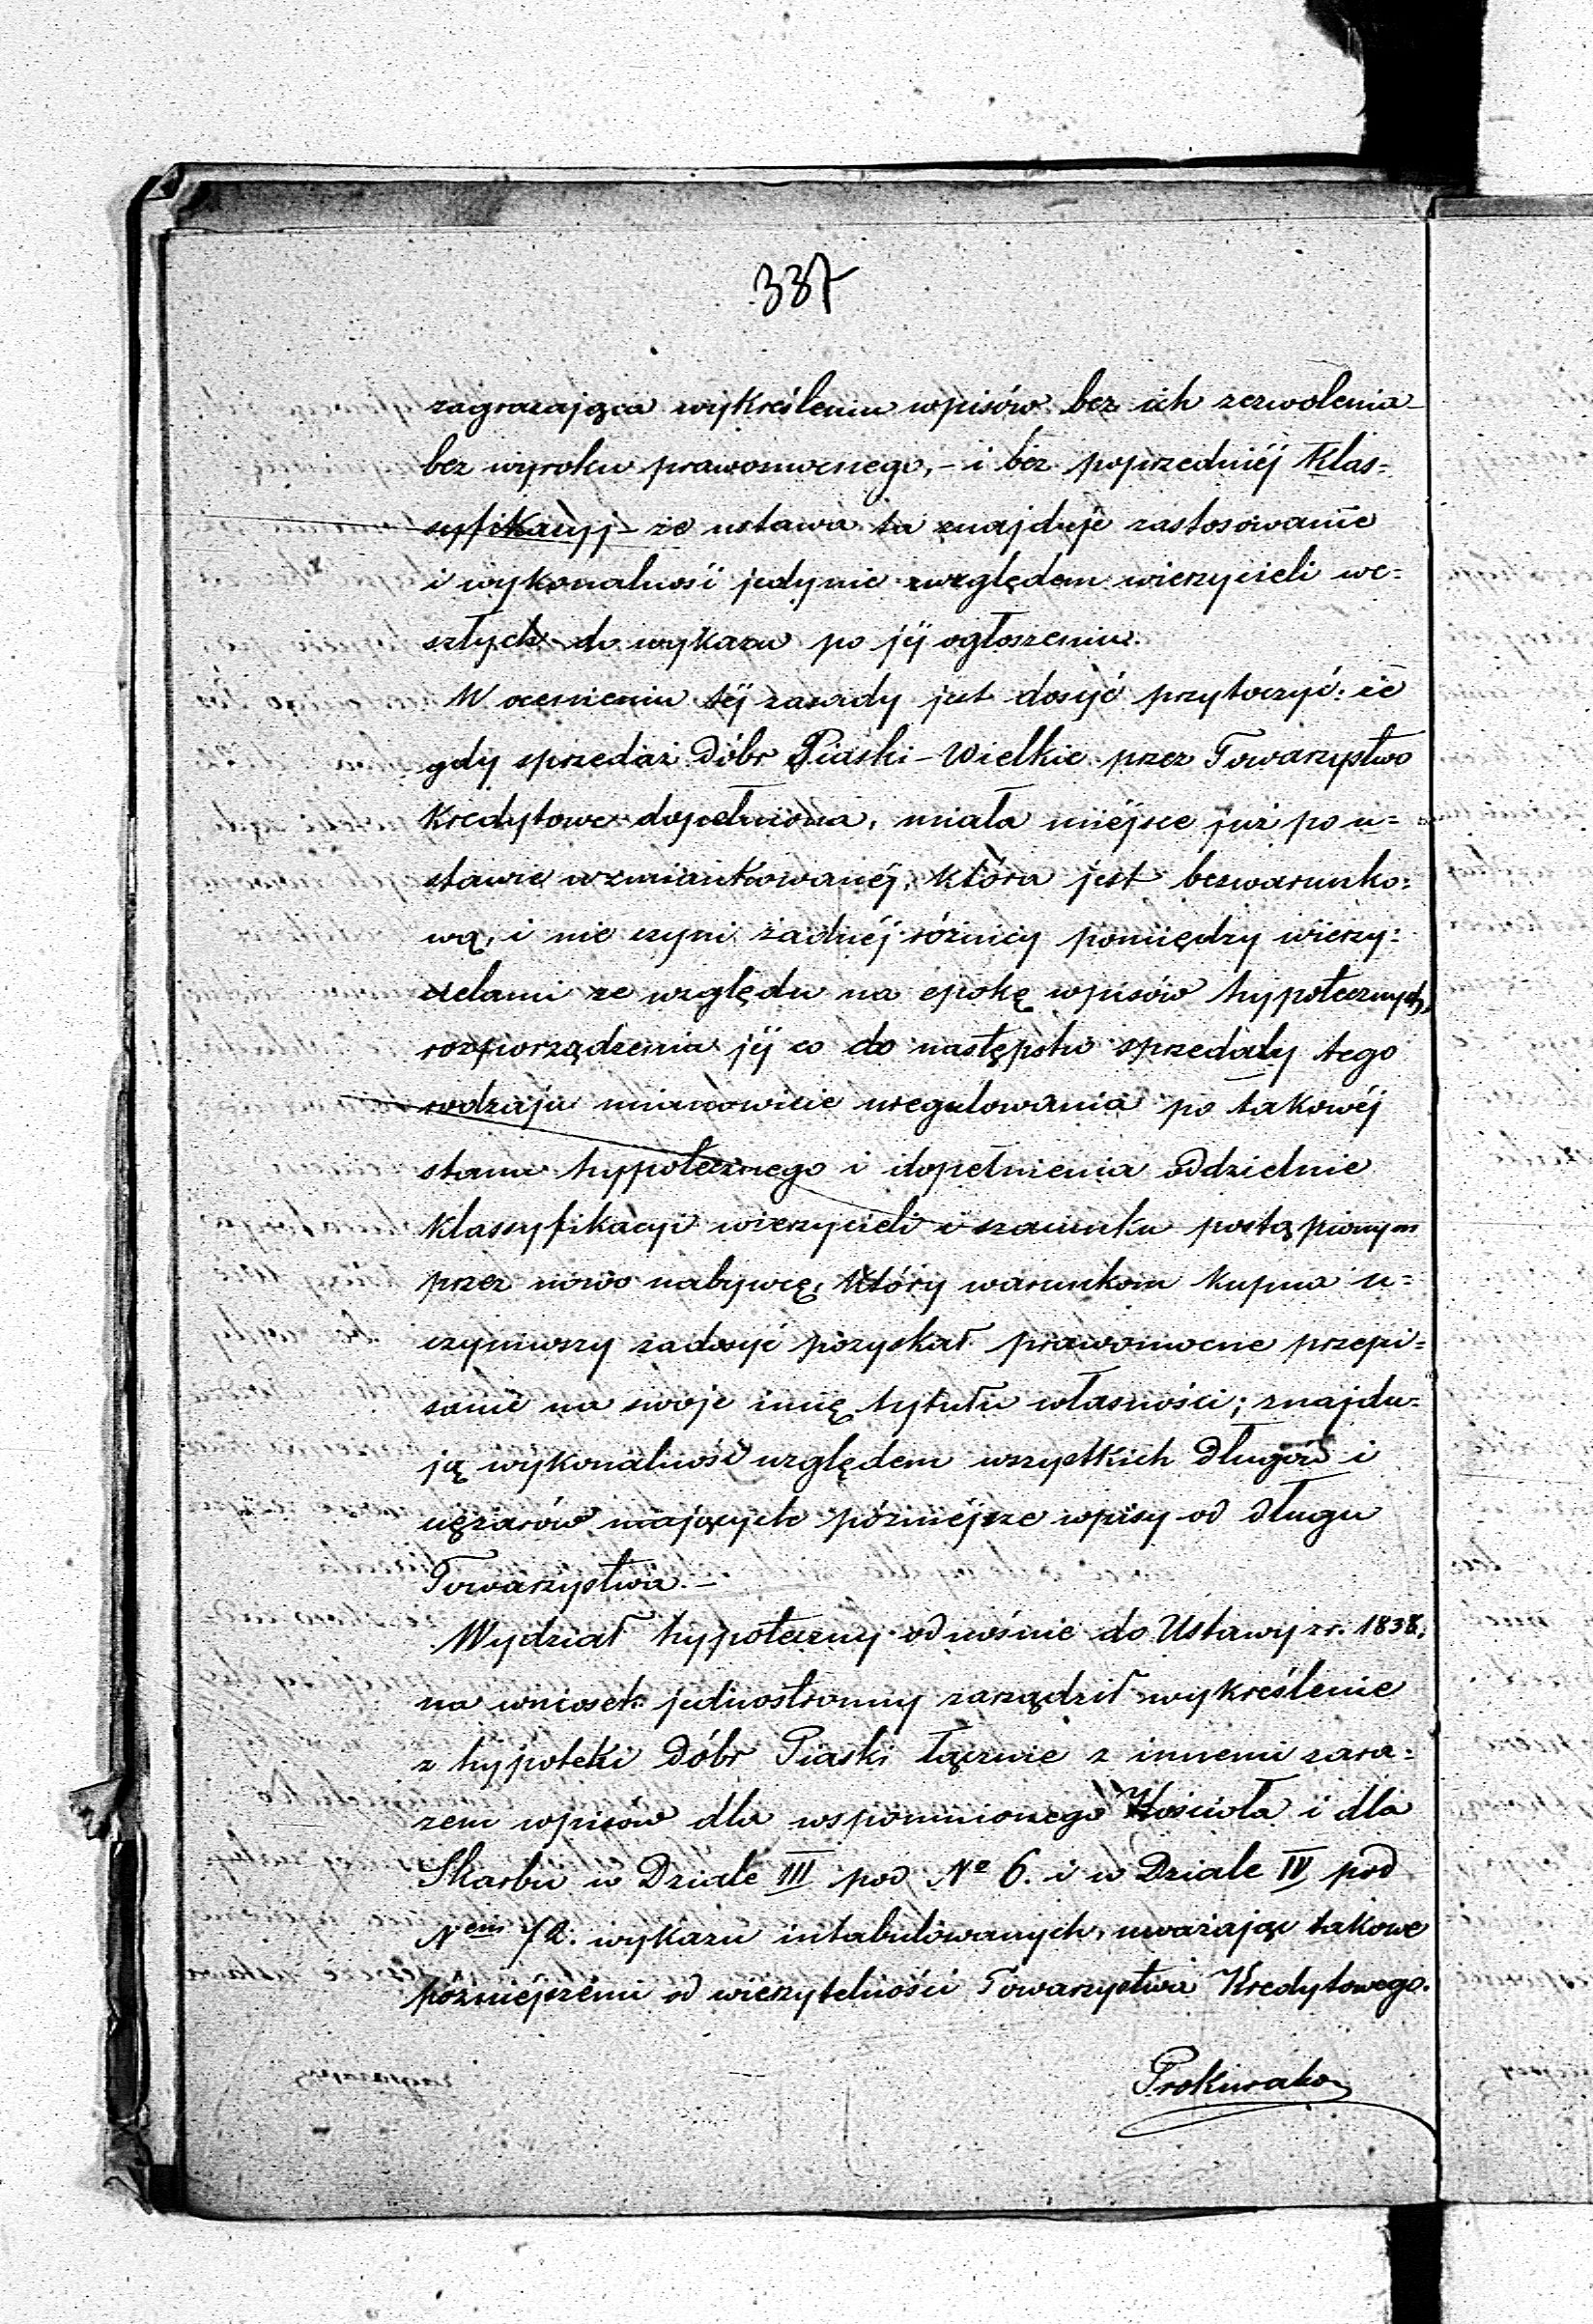 337
zagrażająca wykreśleniu wpisów bez ich zezwolenia
bez wyroku prawomocnego, – i bez poprzedniéj Klas=
syfikacyj – że ustawa ta znajduje zastosowanie
i wykonalność jedynie względem wierzycieli we=
szłych do wykazu po jéj ogłoszeniu.
W ocenieniu téj zasady jest dosyć przytoczyć: że
gdy sprzedaż Dóbr Piaski – Wielkie przez Towarzystwo
Kredytowe dopełniona, miała miéjsce już po u=
stawie wzmiankowanéj, która jest bezwarunko=
wą, i nie czyni żadnéj różnicy pomiędzy wierzy=
cielami ze względu na epokę wpisów hypotecznych,
rozporządzenia jéj co do następstw sprzedaży tego
rodzaju mianowicie uregulowania po takowéj
stanu hypotecznego i dopełnienia oddzielnie
Klassyfikacyi wierzycieli i szacunku postąpionym
przez nowo nabywcę, Który warunkom Kupna u=
czyniwszy zadosyć pozyskał prawomocne przepi=
sanie na swoje imię tytułu własności; znajdu=
ją wykonalność względem wszystkich Długów i
ciężarów mających późniéjsze wpisy od długu
Towarzystwa. –
Wydział hypoteczny odnośnie do Ustawy z r. 1838.
na wniosek jednostronny zarządził wykreślenie
z hypoteki Dóbr Piaski łącznie z innemi zara=
zem wpisów dla wspomnionego Kościoła i dla
Skarbu w Dziale III pod Nº 6. i w Dziale IV pod
Nem 12. wykazu intabulowanych, uważając takowe
późniéjszemi od wierzytelności Towarzystwa Kredytowego.
Prokurator